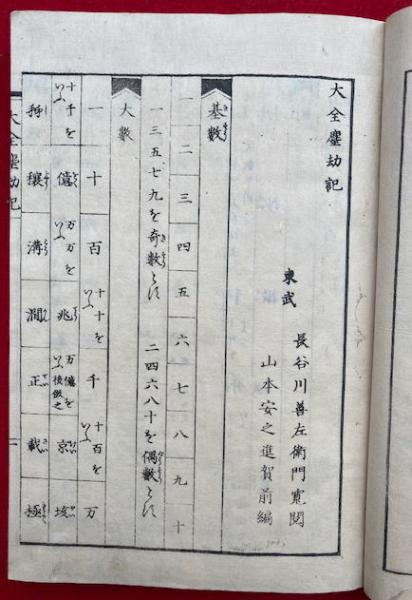 大全塵劫記
東武
長谷川善左衛門寛閲
山本安之進賀前編
基數
一二三四五六七八九十
一三五七九を奇數とす 二四六八十を偶數とす
大數
一 十 百 十十をいふ 千 十百をいふ 万
十千をいふ 億 万万をいふ 兆 万億をいふ後倣之 京 垓
秭 穰 溝 澗 正 載 極
大全塵劫記 一